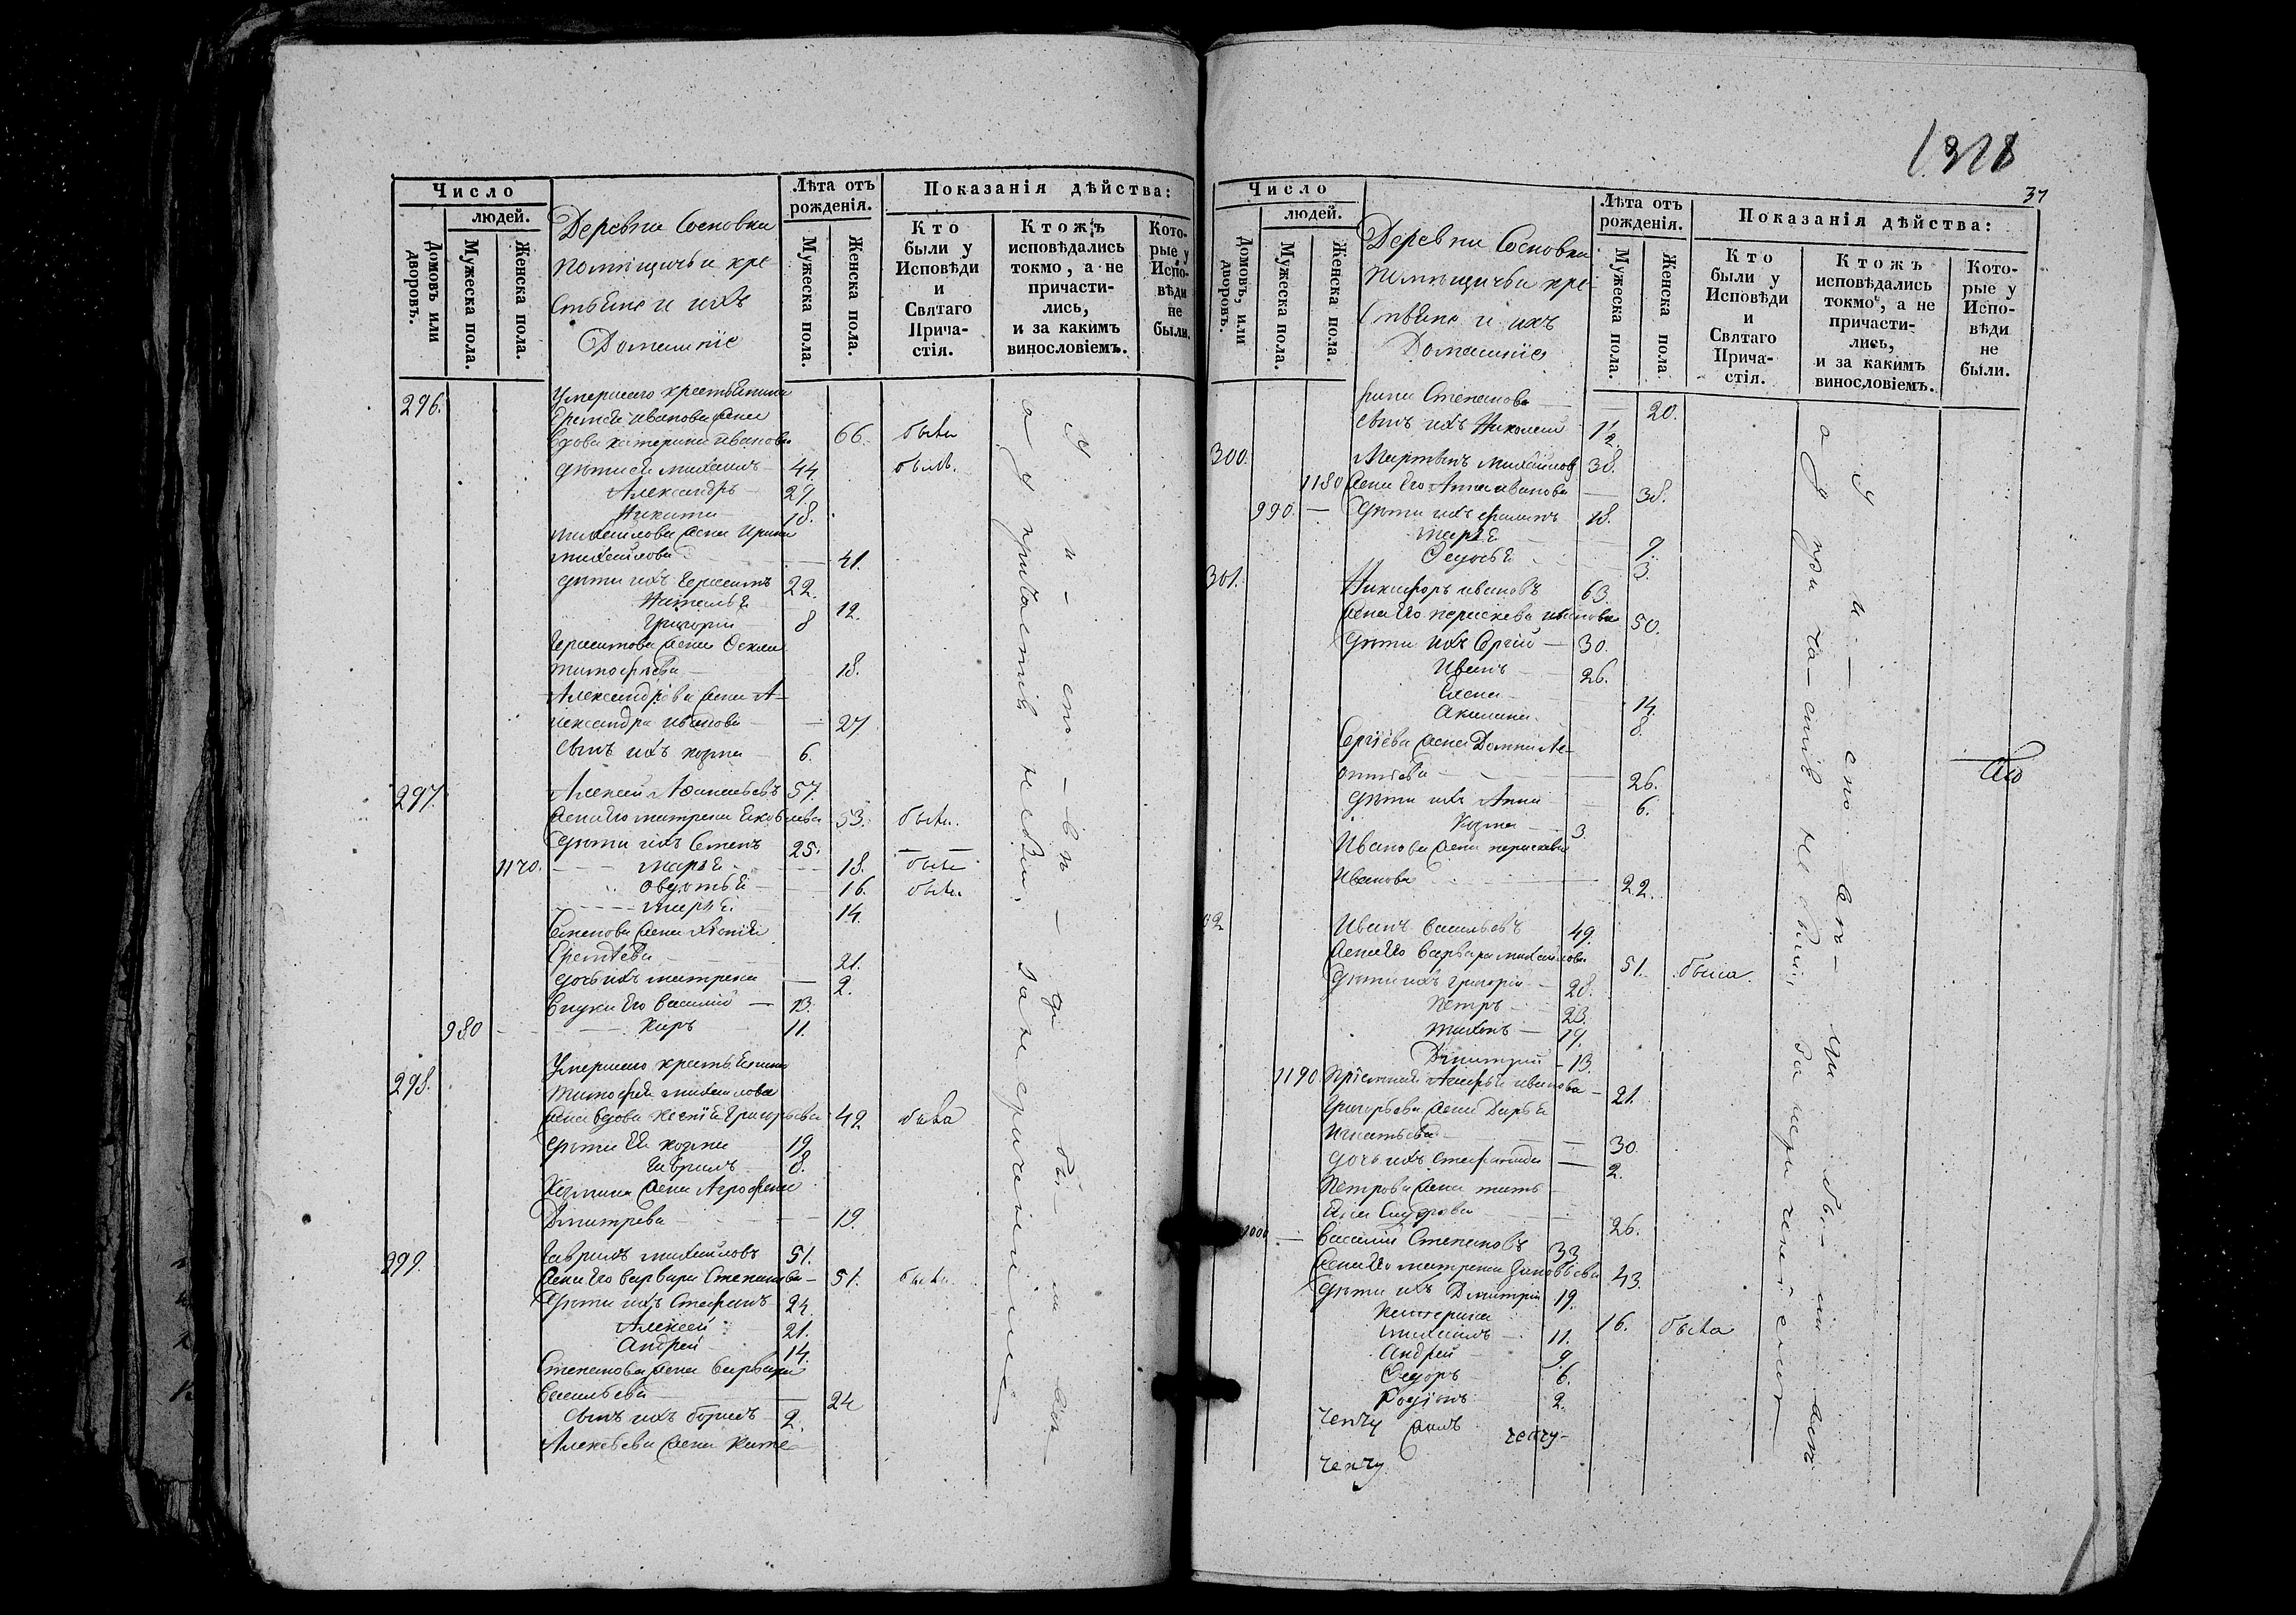 Число
людей.
Домовъ или дворовъ.
Мужеска пола.
Женска пола.
Деревни Сосновки
помѣщичьи кре
стьяне и ихъ
Домашніе
Лѣта отъ рожденія.
Мужеска пола.
Женска пола.
Показанія дѣйства:
Кто были у Исповѣди и Святаго Прича-стія.
Ктожъ исповѣдались токмо, а не причасти-лись, и за какимъ винословіемъ.
Кото-рые у Испо-вѣди не были.
296. Умершаго крестьянина
Иванова жена
вдова катерина Иванова 66. была
дѣти ея михаилъ 44. былъ.
Александръ 29.
Никита 18.
михайлова жена Ирина
михайлова 41.
дѣти ихъ Герасимъ 22.
Наталья 12.
Григорій 8
Герасимова жена Фекла
тимофѣева 18.
Александрова жена А-
лександра Иванова 27
сынъ ихъ козма 6.
297. Алексей Афанасьевъ 57.
жена его матрена Яковлева 53. была.
дѣти ихъ Семенъ 25.
1170. марья 18. была
Авдотья 16. была.
марья 14.
Семенова жена Ксенія
21.
дочь ихъ матрена 2.
Внуки его василій 13.
980 киръ 11.
298. Умершаго крестьянина
тимофея михайлова
жена вдова Ксенія Григорьева 42 была
дѣти ея козма 19
Гаврилъ 8.
Козмина жена Агрофена
Дмитрева 19.
299. Гаврилъ михайловъ 51.
жена его варвара Степанова 51. была.
дѣти ихъ Стефанъ 24.
Алексей 21.
Андрей 14.
Степанова жена варвара
Васильева 24
сынъ ихъ борисъ 2.
Алексѣева жена Кате
у и - ст - въ
а у причастія не были, за нерачениемъ
1318
37
Число
людей.
Домовъ, или дворовъ.
Мужеска пола.
Женска пола.
Деревни Сосновки
помѣщичьи кре-
стьяне и ихъ
Домашніе
Лѣта отъ рожденія.
Мужеска пола.
Женска пола
Показанія дѣйства:
Кто были у Исповѣди и Святаго Прича-стія.
Ктожъ исповѣдались токмо, а не причасти-лись, и за какимъ винословіемъ.
Кото-рые у Испо-вѣди не были.
рина Степанова 20.
сынъ ихъ Николай 1½
300. Мартынъ михайловъ 38.
1180 жена его Анна иванова 38.
990. дѣти ихъ филипъ 18.
Марья 9.
Федосья 3.
301. Никифоръ ивановъ 63.
жена его параскева иванова 50.
дѣти ихъ Сергій 30.
Иванъ 26.
Елена 14.
Акилина 8.
Сергіева жена Домна Ле-
онтьева 26.
дѣти ихъ Анна 6.
Козма 3.
Иванова жена параскева
Иванова 22.
02 Иванъ васильевъ 49.
жена его варвара михайлова 51. была.
дѣти ихъ григорій 28.
Петръ 23.
тихонъ 17.
Дмитрий 13.
1190. иванова 21.
григорьева жена Дарья
игнатьева 30.
дочь ихъ стефанида 2.
Петрова жена тать-
яна 26.
1000 василій Степановъ 33
жена его матрена Зиновьева 43.
дѣти ихъ Дмитрій 19.
катерина 16. была
михаилъ 11.
Андрей 9.
Федоръ 6.
Родіонъ 2.
у и - сто въ
а у при ча-стія не были, за нерачениемъ